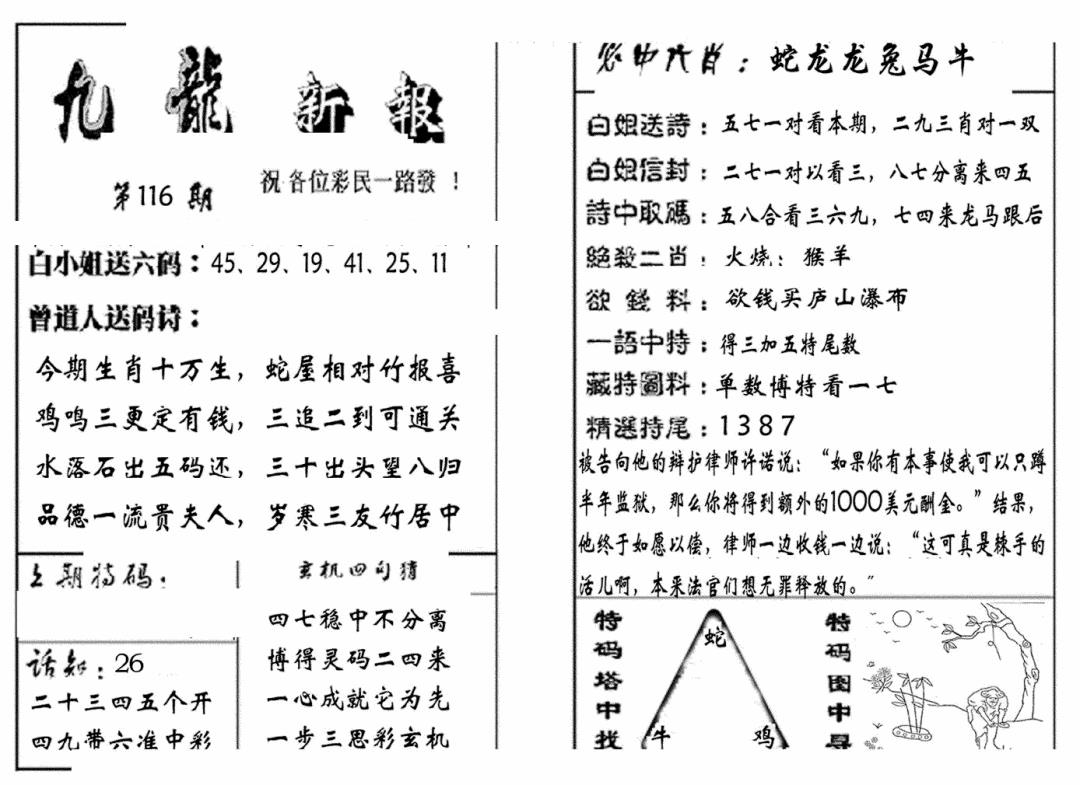 九龍新報
第116期
祝各位彩民一路發！
白小姐送六码：45、29、19、41、25、11
曾道人送码诗：
今期生肖十万生，蛇屋相对竹报喜
鸡鸣三更定有钱，三追二到可通关
水落石出五码还，三十出头望八归
品德一流贵夫人，岁寒三友竹居中
上期特码：
话知：26
二十三四五个开
四九带六准中彩
玄机四句猜
四七稳中不分离
博得灵码二四来
一心成就它为先
一步三思彩玄机
必中六肖：蛇龙龙兔马牛
白姐送詩：五七一对看本期，二九三肖对一双
白姐信封：二七一对以看三，八七分离来四五
詩中取碼：五八合看三六九，七四来龙马跟后
絕殺二肖：火烧：猴羊
欲錢料：欲钱买庐山瀑布
一語中特：得三加五特尾数
藏特圖料：单数博特看一七
精選特尾：1387
被告向他的辩护律师许诺说：“如果你有本事使我可以只蹲
半年监狱，那么你将得到额外的1000美元酬金。”结果，
他终于如愿以偿，律师一边收钱一边说：“这可真是辣手的
活儿啊，本来法官们想无罪释放的。”
特码塔中找
蛇
牛
鸡
特码图中寻